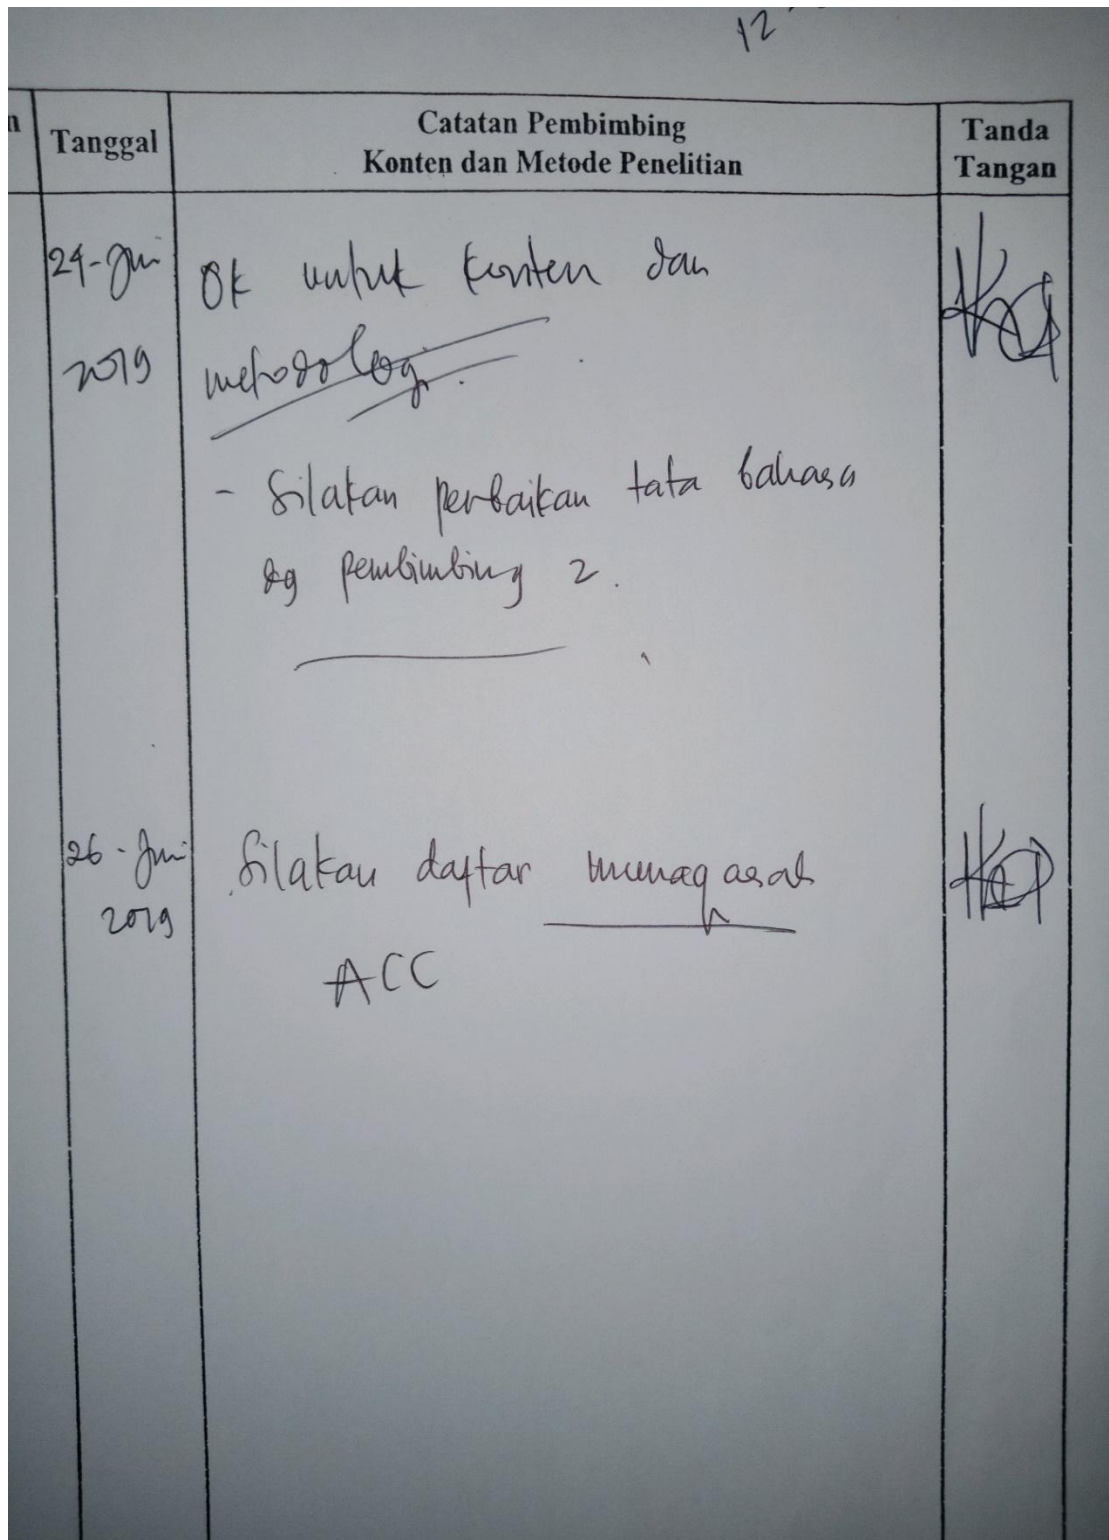 12
Tanggal
Catatan Pembimbing
Konten dan Metode Penelitian
Tanda
Tangan
24-Juni
2019
Ok untuk konten dan
metodologi.
- Silakan perbaikan tata bahasa
dg pembimbing 2.
26-Juni
2019
Silakan daftar munaqasah
ACC